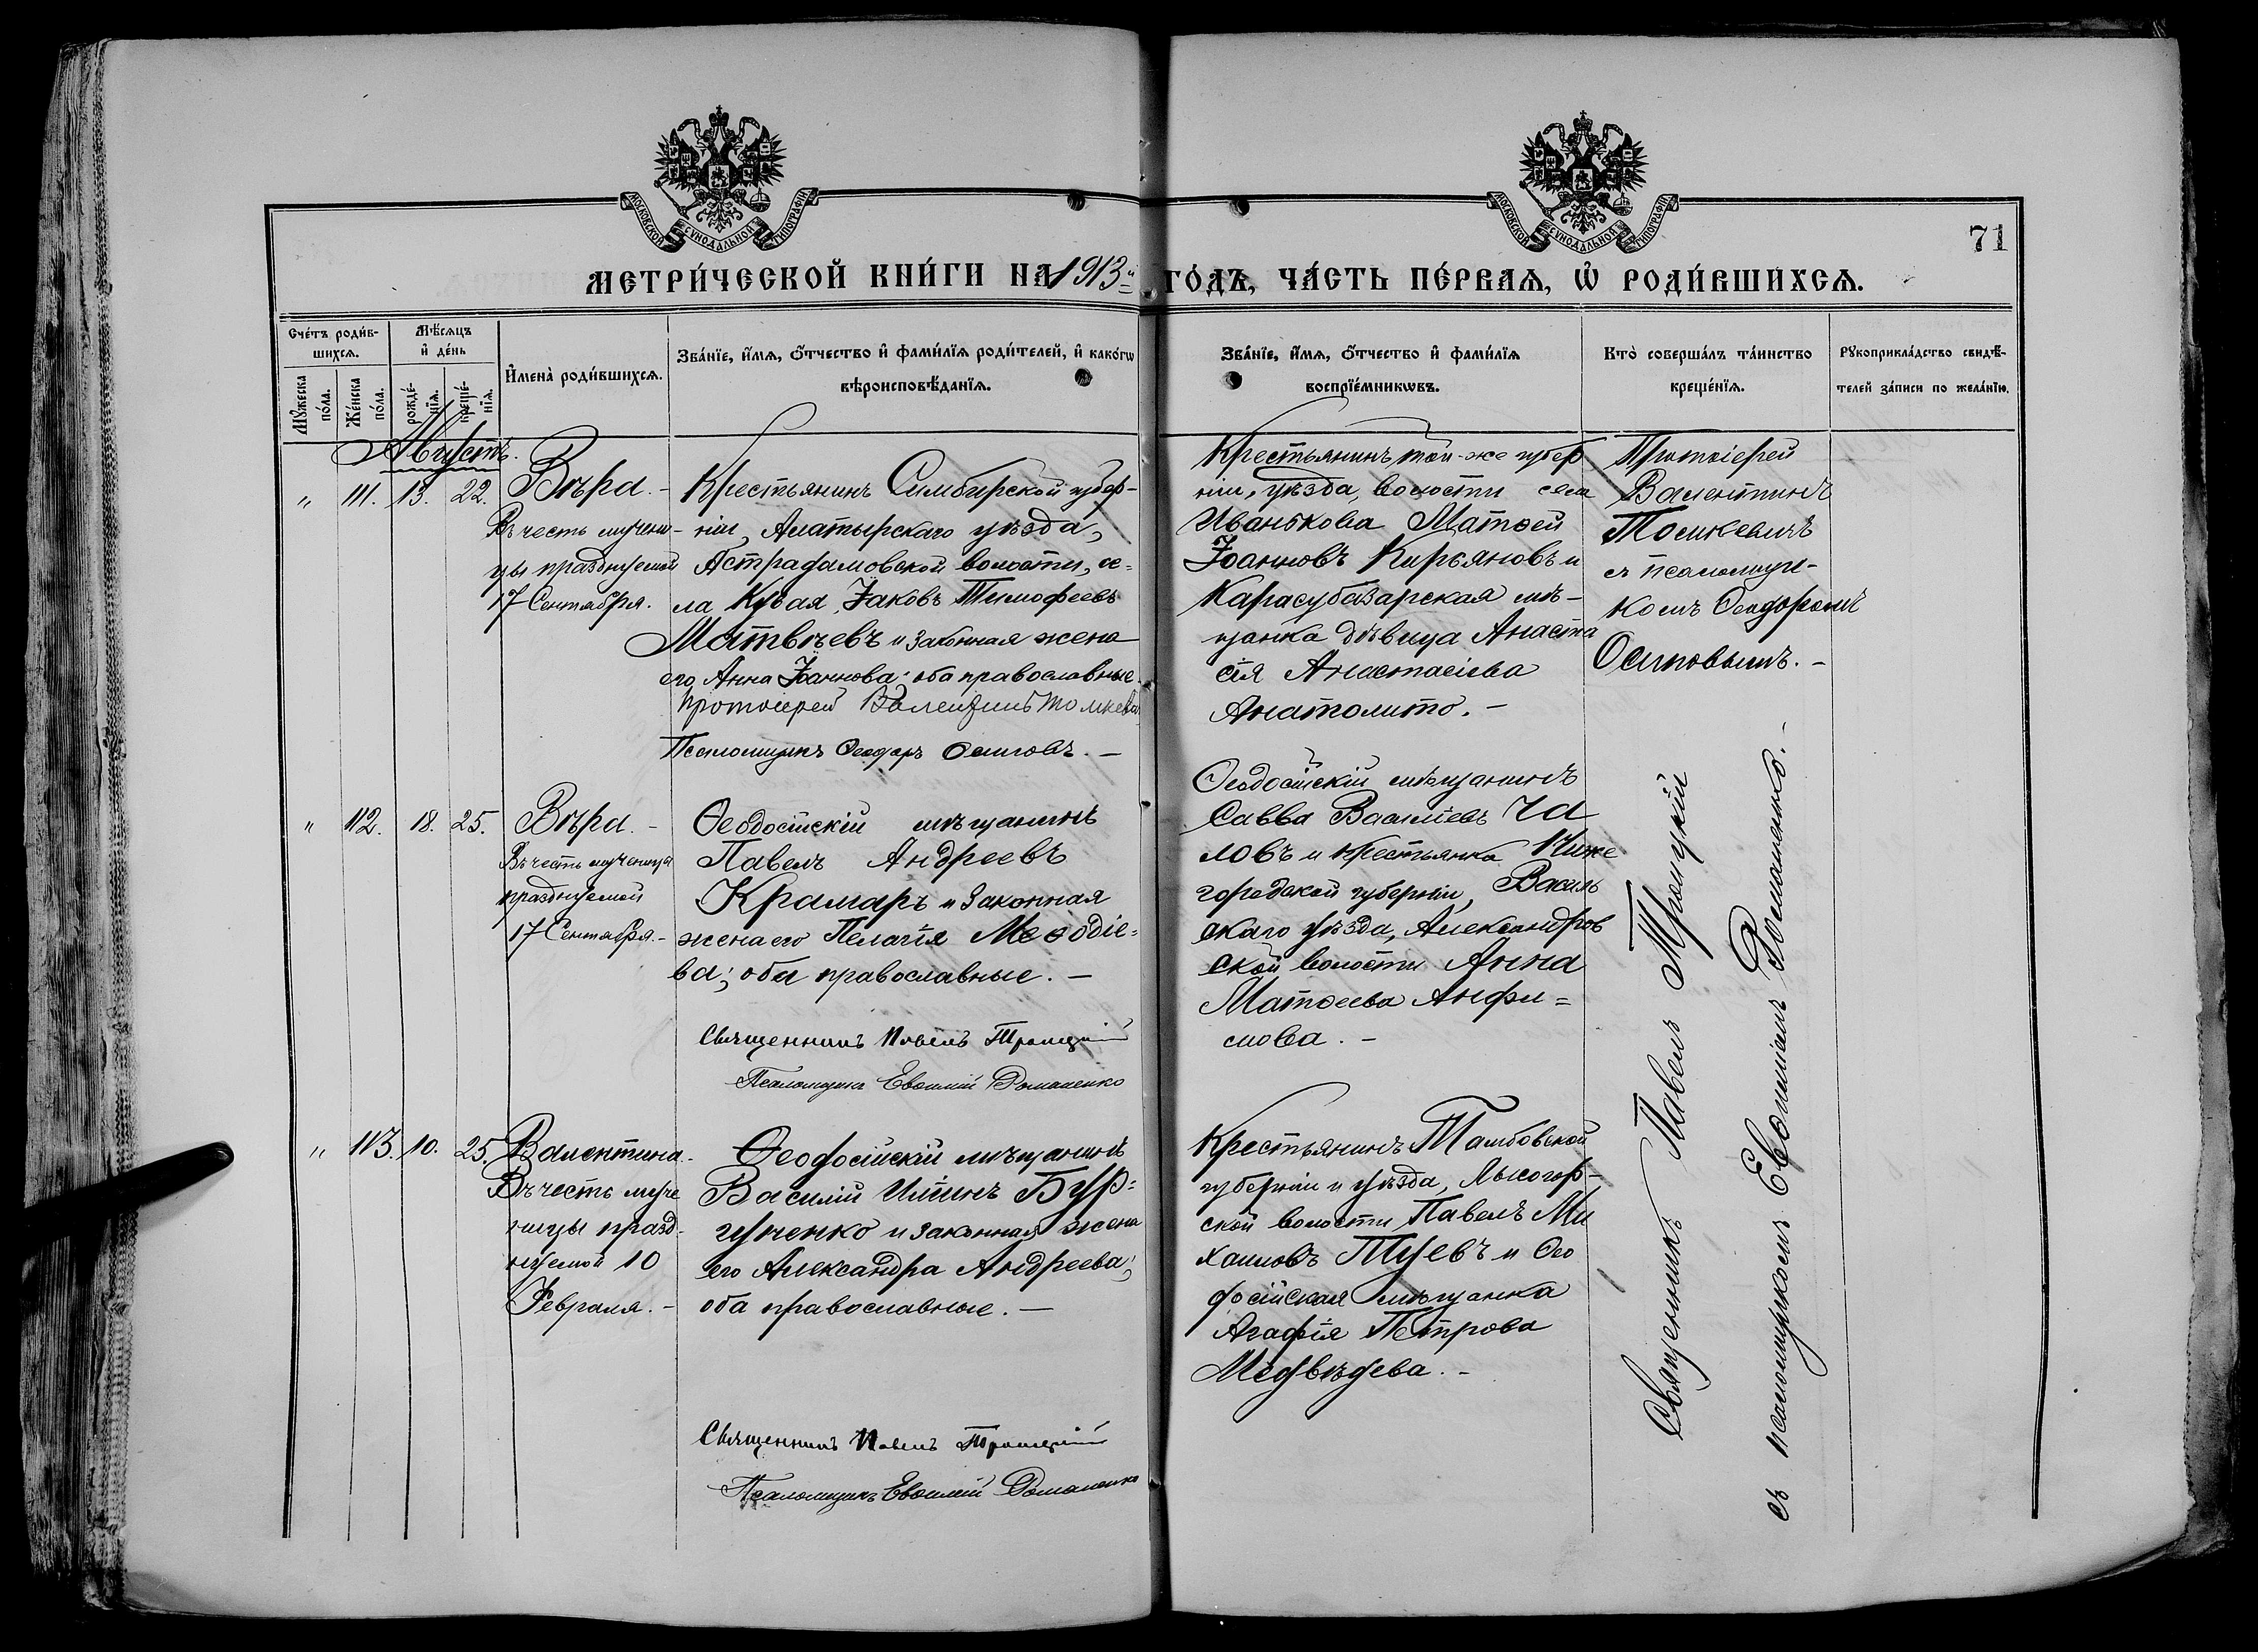 МОСКОВСКОЙ СѴНОДАЛЬНОЙ ТИПОГРАФІИ
МОСКОВСКОЙ СѴНОДАЛЬНОЙ ТИПОГРАФІИ
71
МЕТРИ́ЧЕСКОЙ КНИ́ГИ НА 1913й ГО́ДЪ, ЧА́СТЬ ПЕ́РВАѦ, Ѡ РОДИ́ВШИХСѦ.
Сче́тъ роди́в-
шихсѧ.
Мꙋ́жеска
по́ла.
Же́нска
по́ла.
Мѣ́сѧцъ
и҆ де́нь
рожде́-
нїѧ.
креще́-
нїѧ.
И҆мена̀ роди́вшихсѧ.
Зва́нїе, и҆́мѧ, ѻ҆́тчество и҆ фами́лїѧ роди́телей, и҆ како́гѡ
вѣроисповѣ́данїѧ.
Зва́нїе, и҆́мѧ, ѻ҆́тчество и҆ фами́лїѧ
воспрїе́мникѡвъ.
Кто̀ соверша́лъ та́инство
креще́нїѧ.
Рꙋкоприкла́дство свидѣ́-
телей за́писи по жела́нїю.
Августъ.
" 111. 13. 22.
Вѣра. -
Въ честь мучени-
цы празднуемой
17 Сентября.
Крестьянинъ Симбирской губер-
ніи, Алатырскаго уѣзда,
Астрадамовской волости, се-
ла Кувая, Іаковъ Тимофеевъ
Матвѣевъ и законная жена
его Анна Іоаннова; оба православные.
Протоіерей Валентинъ Томкевичъ
Псаломщикъ Ѳеодоръ Осиповъ. -
Крестьянинъ той-же губер
ніи, уѣзда, волости села
Иванькова Матѳей
Іоанновъ Кирьяновъ и
Карасубазарская мѣ-
щанка дѣвица Анаста
сія Анастасіева
Анатолито. -
Протоіерей
Валентинъ
Томкевичъ
съ псаломщи-
комъ Ѳеодоромъ
Осиповымъ. -
" 112. 18. 25.
Вѣра. -
Въ честь мученицы
празднуемой
17 Сентября. -
Ѳеодосійскій мѣщанинъ
Павелъ Андреевъ
Крамаръ и законная
жена его Пелагія Меѳодіе-
ва; оба православные. -
Священникъ Павелъ Троицкій
Псаломщикъ Евѳимій Романенко
Ѳеодосійскій мѣщанинъ
Савва Василіевъ Ча
ловъ и крестьянка Ниже
городской губерніи, Василь
скаго уѣзда, Александров
ской волости Анна
Матѳеева Анфи-
мова. -
" 113. 10. 25.
Валентина. -
Въ честь муче
ницы празд-
нуемой 10
Февраля. -
Ѳеодосійскій мѣщанинъ
Василій Иліинъ Бур-
гученко и законная жена
его Александра Андреева;
оба православные. -
Священникъ Павелъ Троицкій
Псаломщикъ Евѳимій Романенко
Крестьянинъ Тамбовской
губерніи и уѣзда, Лысогор-
ской волости Павелъ Ми
хаиловъ Туевъ и Ѳео
досійская мѣщанка
Агафія Петрова
Медвѣдева. -
Священникъ Павелъ Троицкій
съ псаломщикомъ Евѳиміемъ Романенко. -